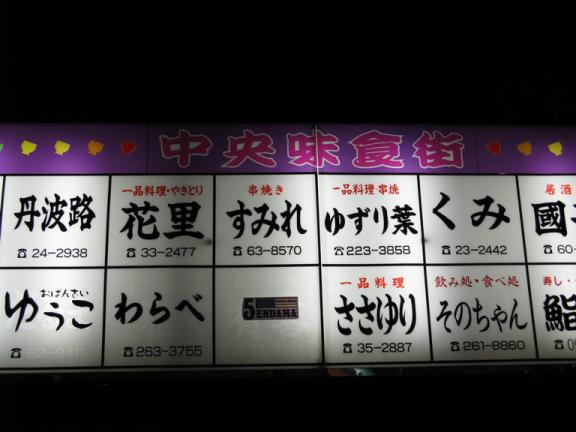 中央味食街
丹波路
☎24-2938
一品料理・やきとり
花里
☎33-2477
串焼き
すみれ
☎63-8570
一品料理・串焼
ゆずり葉
☎223-3858
くみ
☎23-2442
居酒
國
☎60-
おばんさい
ゆうこ
☎62-9411
わらべ
☎263-3755
5
ENDAMA
一品料理
ささゆり
☎35-2887
飲み処・食べ処
そのちゃん
☎261-8860
寿し・
鮨